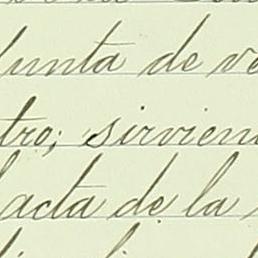 Junta de ve
tro; sirvien
acta de la